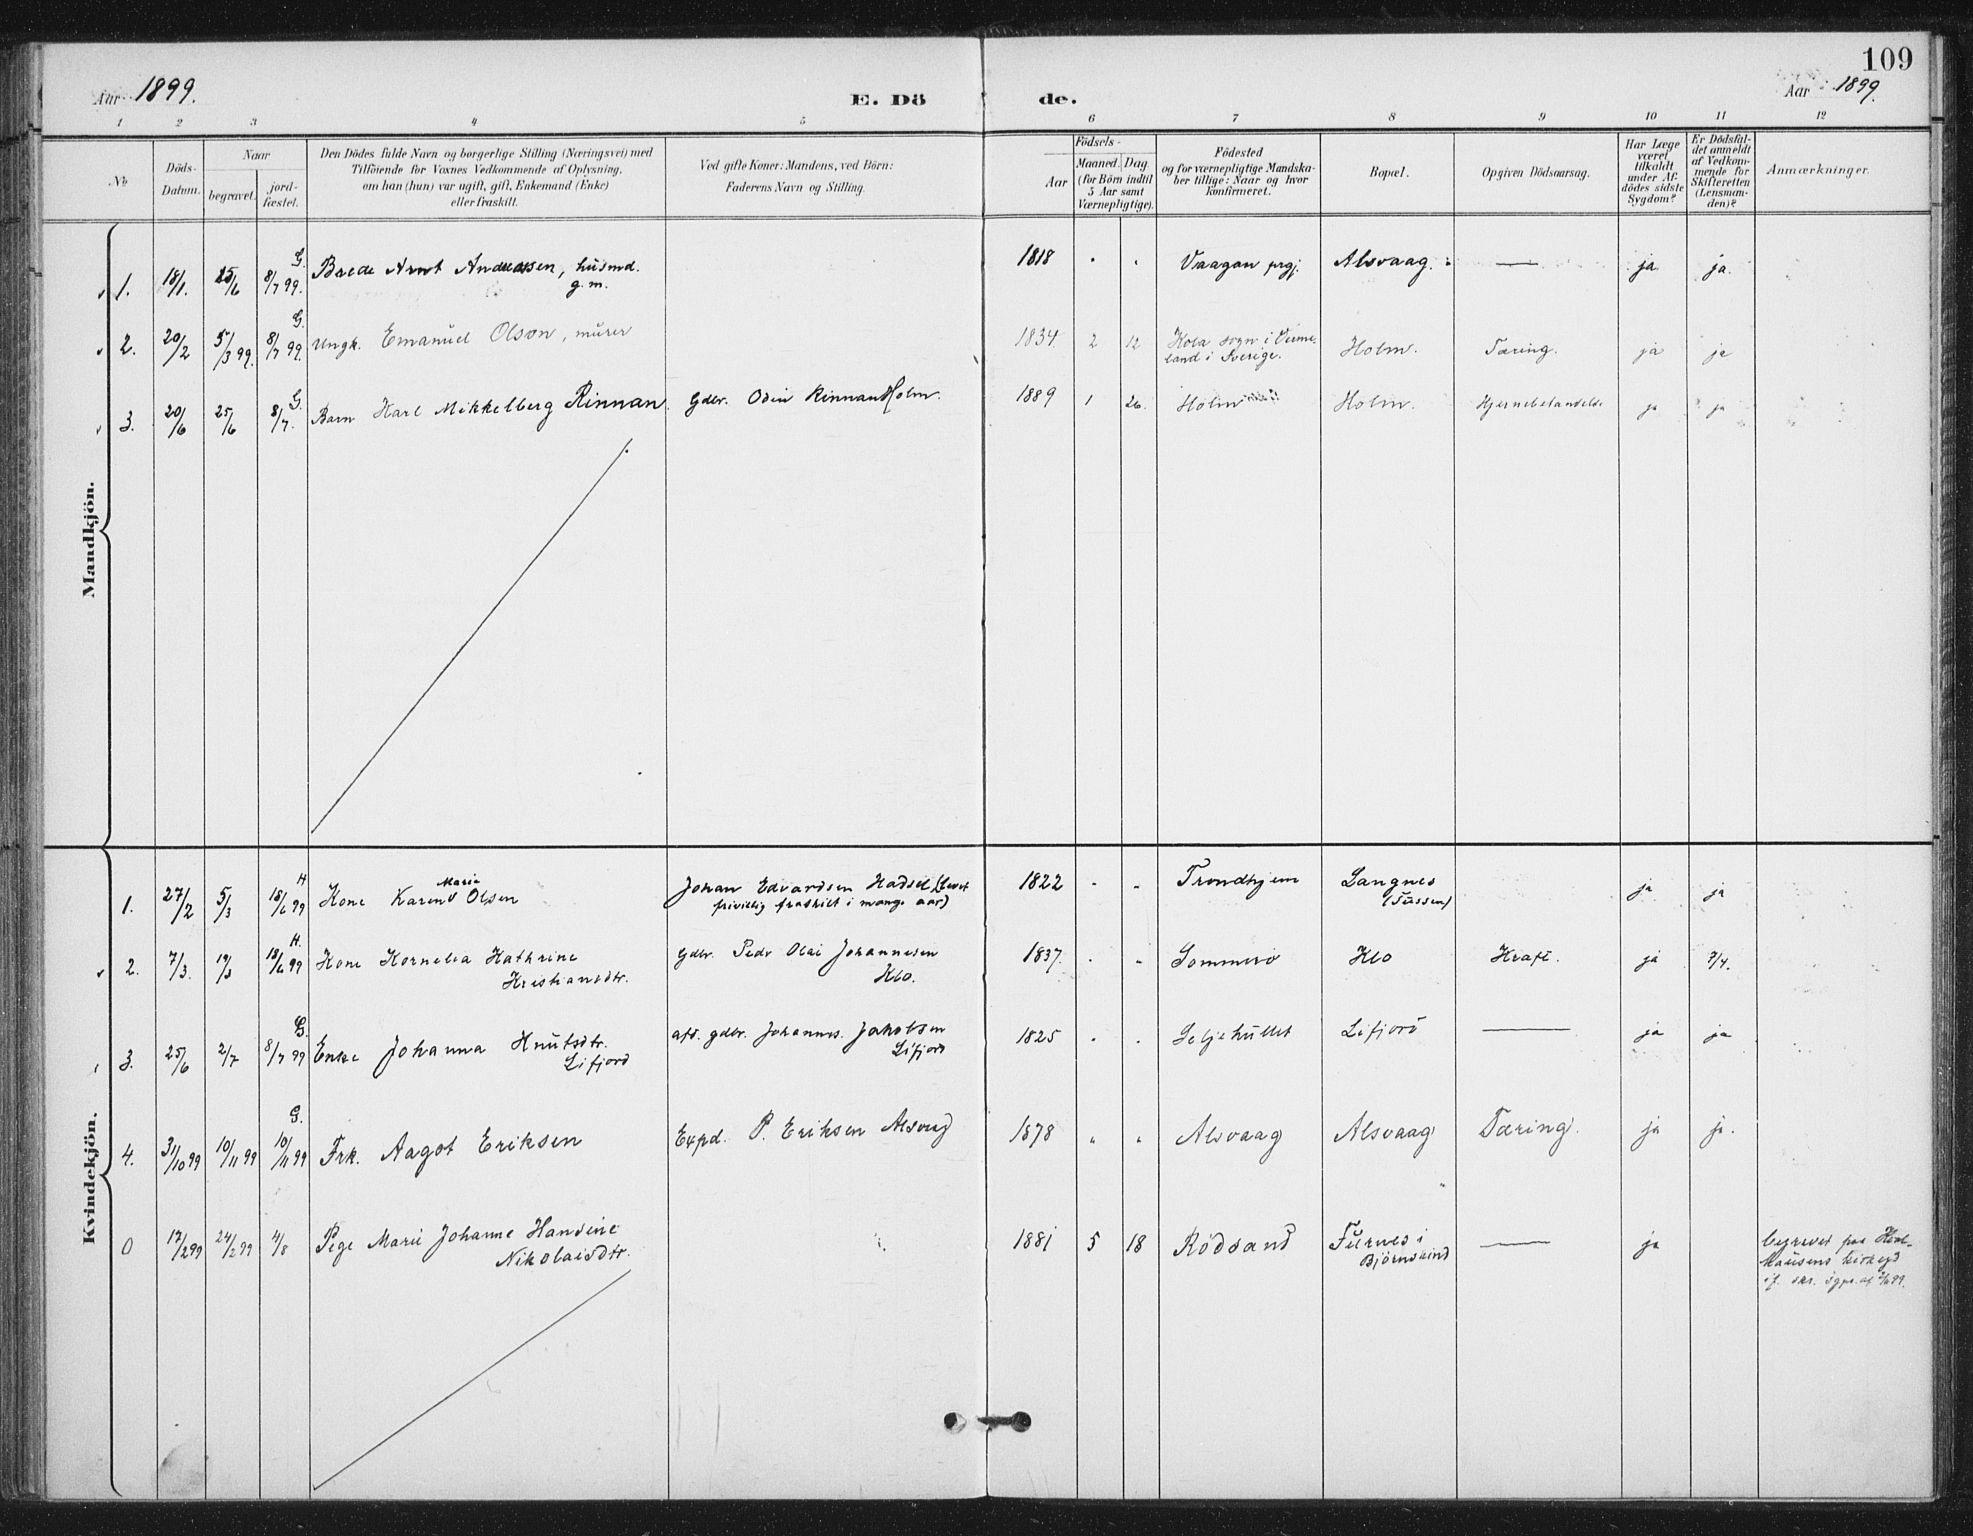 109
Aar 1899.
E. Dö de.
Aar 1899.
1 2 3 4 5 6 7 8 9 10 11 12
No
Döds-
Datum.
Naar
begravet.
jord-
fæstet.
Den Dödes fulde Navn og borgerlige Stilling (Næringsvei) med
Tilföiende for Voxnes Vedkommende af Oplysning,
om han (hun) var ugift, gift, Enkemand (Enke)
eller fraskilt.
Ved gifte Koner: Mandens, ved Börn:
Faderens Navn og Stilling.
Födsels-
Aar
Maaned.
Dag.
(for Börn indtil
5 Aar samt
Værnepligtige).
Födested
og for værnepligtige Mandska-
ber tillige: Naar og hvor
konfirmeret.
Bopæl.
Opgiven Dödsaarsag.
Har Læge
været
tilkaldt
under Af-
dödes sidste
Sygdom?
Er Dödsfal-
det anmeldt
af Vedkom-
mende for
Skifteretten
(Lensman-
den)?
Anmærkninger.
Mandkjön.
1. 18/1. 25/6 G. 8/7 99. Brede Arnt Andreassen, husmd.
g.m.
1818 Vaagan prgj. Alsvaag. — ja ja.
2. 20/2 5/3 99. G. 8/7 99. Ungk. Emanuel Olson, murer 1834 2 12 Kola sogn i Verme-
land i Sverige. Holm. Tæring. ja ja
3. 20/6 25/6 G. 8/7. Barn Karl Mikkelberg Rinnan Gdbr. Odin Rinnan Holm. 1889 1 26 Holm Holm. ja ja
Kvindekjön.
1. 27/2 5/3 H 18/6 99 Kone Karen Marie Olsen Johan Edvardsen Hadsel (levet
frivillig fraskilt i mange aar)
1822 Trondhjem Langnes ja ja
2. 7/3. 19/3 H. 18/6 99 Kone Kornelia Kathrine
Kristiansdtr.
Gdbr. Peder Olai Johannesen
Klo.
1837. Sommerö Klo Kræft. ja 7/4.
3. 25/6 2/7 G. 8/7 99 Enke Johanna Knutsdtr.
Lifjord
afd. gdbr. Johannes Jakobsen
Lifjord
1825 Lifjord — ja ja
4. 31/10 99 10/11 99 G. 10/11 99 Frk. Aagot Eriksen Expd. P. Eriksen Alsvaag 1878 " " Alsvaag Alsvaag Tæring. ja ja.
0 17/2 99 24/2 99 4/8 Pige Marie Johanne Hansine
Nikolaisdtr.
1881 5 18 Rödsand
Björnskind — ja
begravet paa
kirkegd